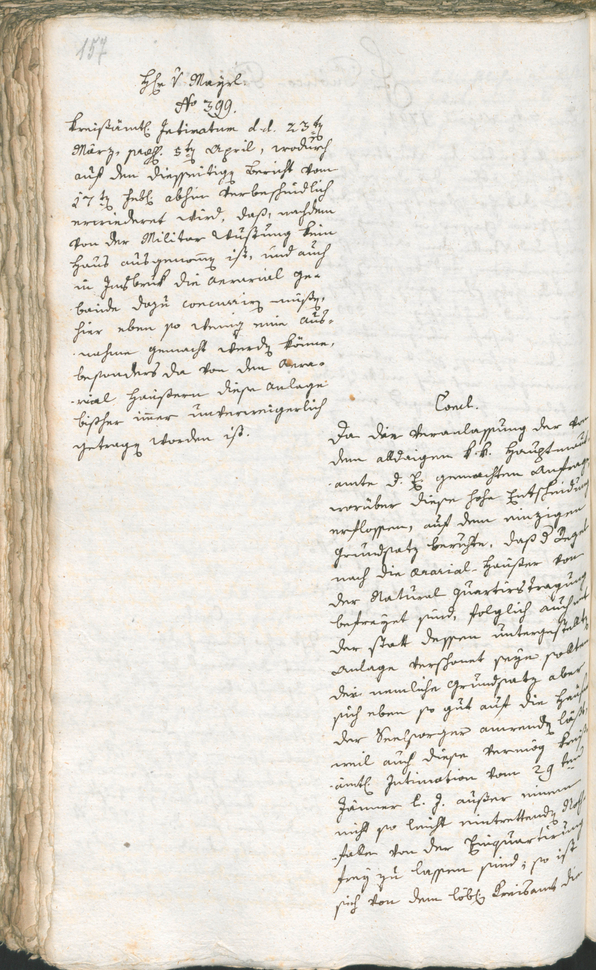 157
Hr. v. Mayrl
No 399.
Kreisämtl. Intimatum d.d. 23ten
März, prs. 5ten April, wodurch
auf den diesseitigen Bericht vom
17ten Febr. abhin verbescheidlich
erwiederet wird, daß, nachdem
von der Militar Wustung kein
Haus ausgenommen ist, und auch
in Insbruk die Aerarial Ge-
bäude dazu concurriren müßen,
hier eben so wenig eine Aus-
nahme gemacht werden könne,
besonders da von den Aera-
rial Häusern diese Anlage
bisher immer unverweigerlich
getragen worden ist.
Concl.
Da die Veranlassung der von
dem alldaigen k.k. Hauptmaut-
amte d. E. gemachten Anfrage
worüber diese hohe Entscheidung
erflossen, auf dem einzigen
Grundsatz beruhte, daß d Regel
nach die Ararial-Häuser von
der Natural Quartirstragung
befreyet sind, folglich auch mit
der statt dessen untergestellten
Anlage verschonet seyn sollten
der nemliche Grundsatz aber
sich eben so gut auf die Häuser
der Seelsorger anwenden läßt,
weil auch diese vermög kreis-
ämtl. Intimation vom 29ten
Jänner l. J. außer einem
nicht so leicht eintrettenden Noth-
falle von der Einquartirung
frey zu lassen sind; so ist
sich von dem löbl. Kreisamt die